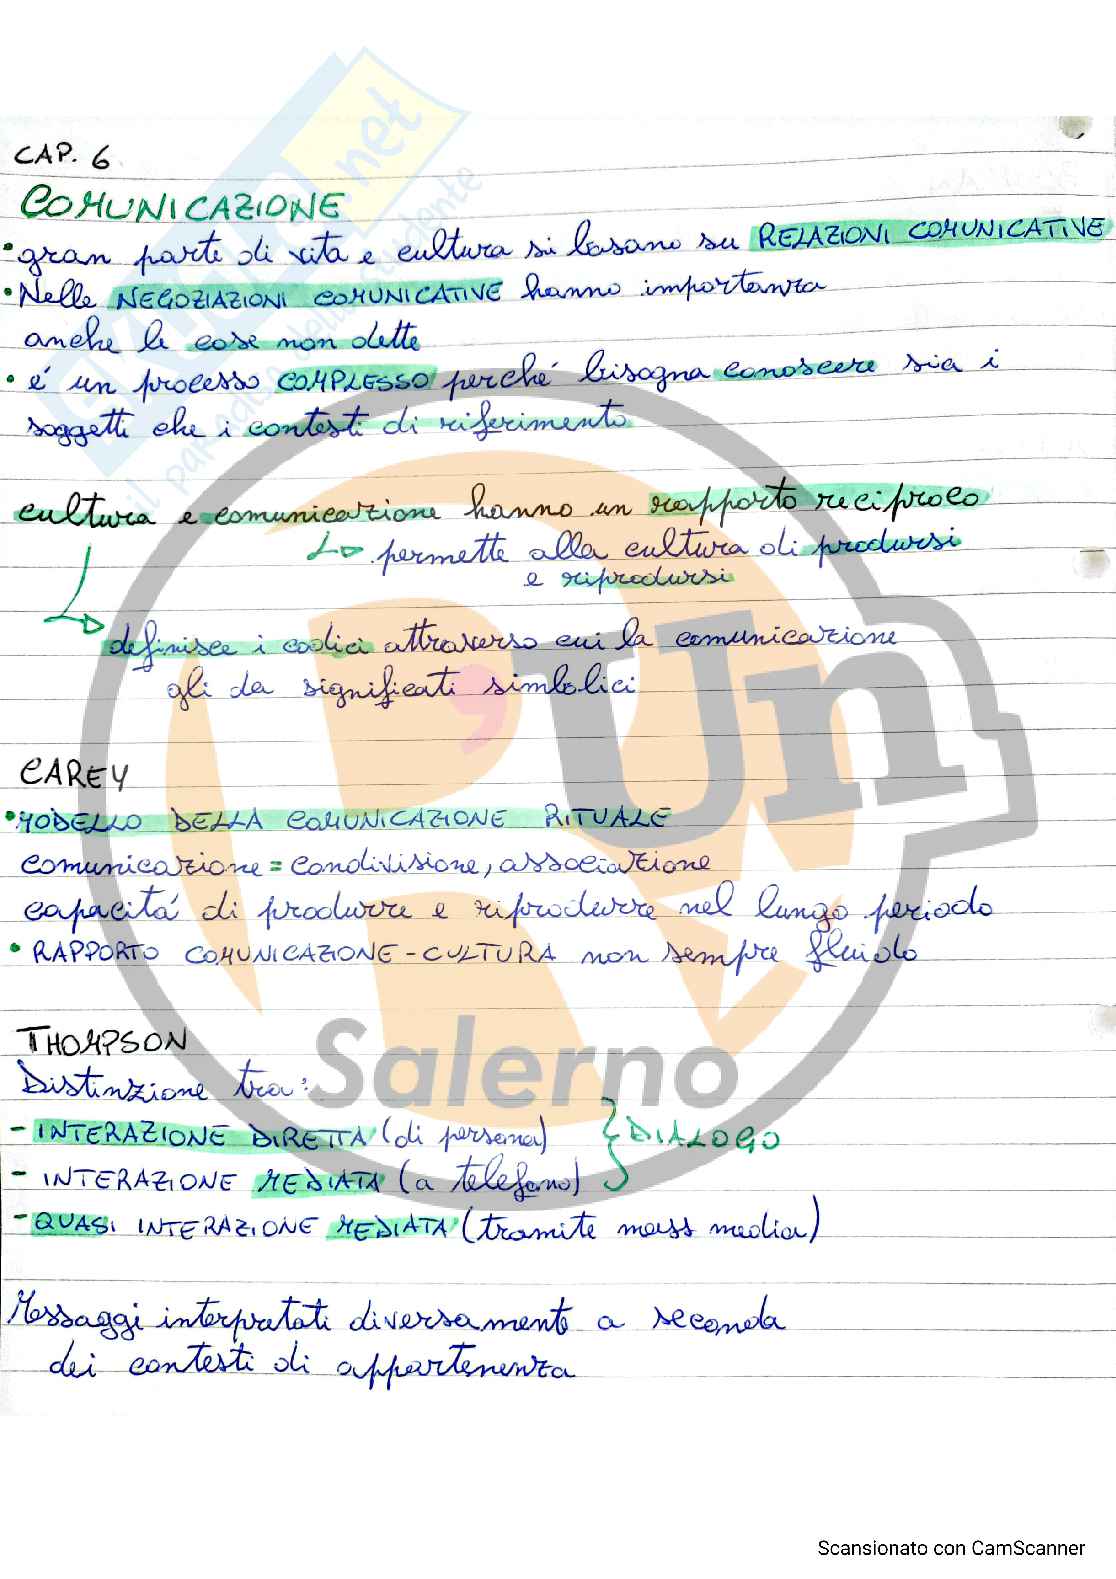 CAP. 6
COMUNICAZIONE
• gran parte di vita e cultura si basano su RELAZIONI COMUNICATIVE
• Nelle NEGOZIAZIONI COMUNICATIVE hanno importanza
anche le cose non dette
• é un processo COMPLESSO perché bisogna conoscere sia i
soggetti che i contesti di riferimento
cultura e comunicazione hanno un rapporto reciproco
permette alla cultura di prodursi
e riprodursi
definisce i codici attraverso cui la comunicazione
gli da significati simbolici
CAREY
• MODELLO DELLA COMUNICAZIONE RITUALE
comunicazione = condivisione, associazione
capacitá di produrre e riprodurre nel lungo periodo
• RAPPORTO COMUNICAZIONE - CULTURA non sempre fluido
THOMPSON
Distinzione tra:
- INTERAZIONE DIRETTA (di persona) } DIALOGO
- INTERAZIONE MEDIATA (a telefono)
- QUASI INTERAZIONE MEDIATA (tramite mass media)
Messaggi interpretati diversamente a seconda
dei contesti di appartenenza
R'Un
Salerno
.net
il paradiso dello studente
Scansionato con CamScanner